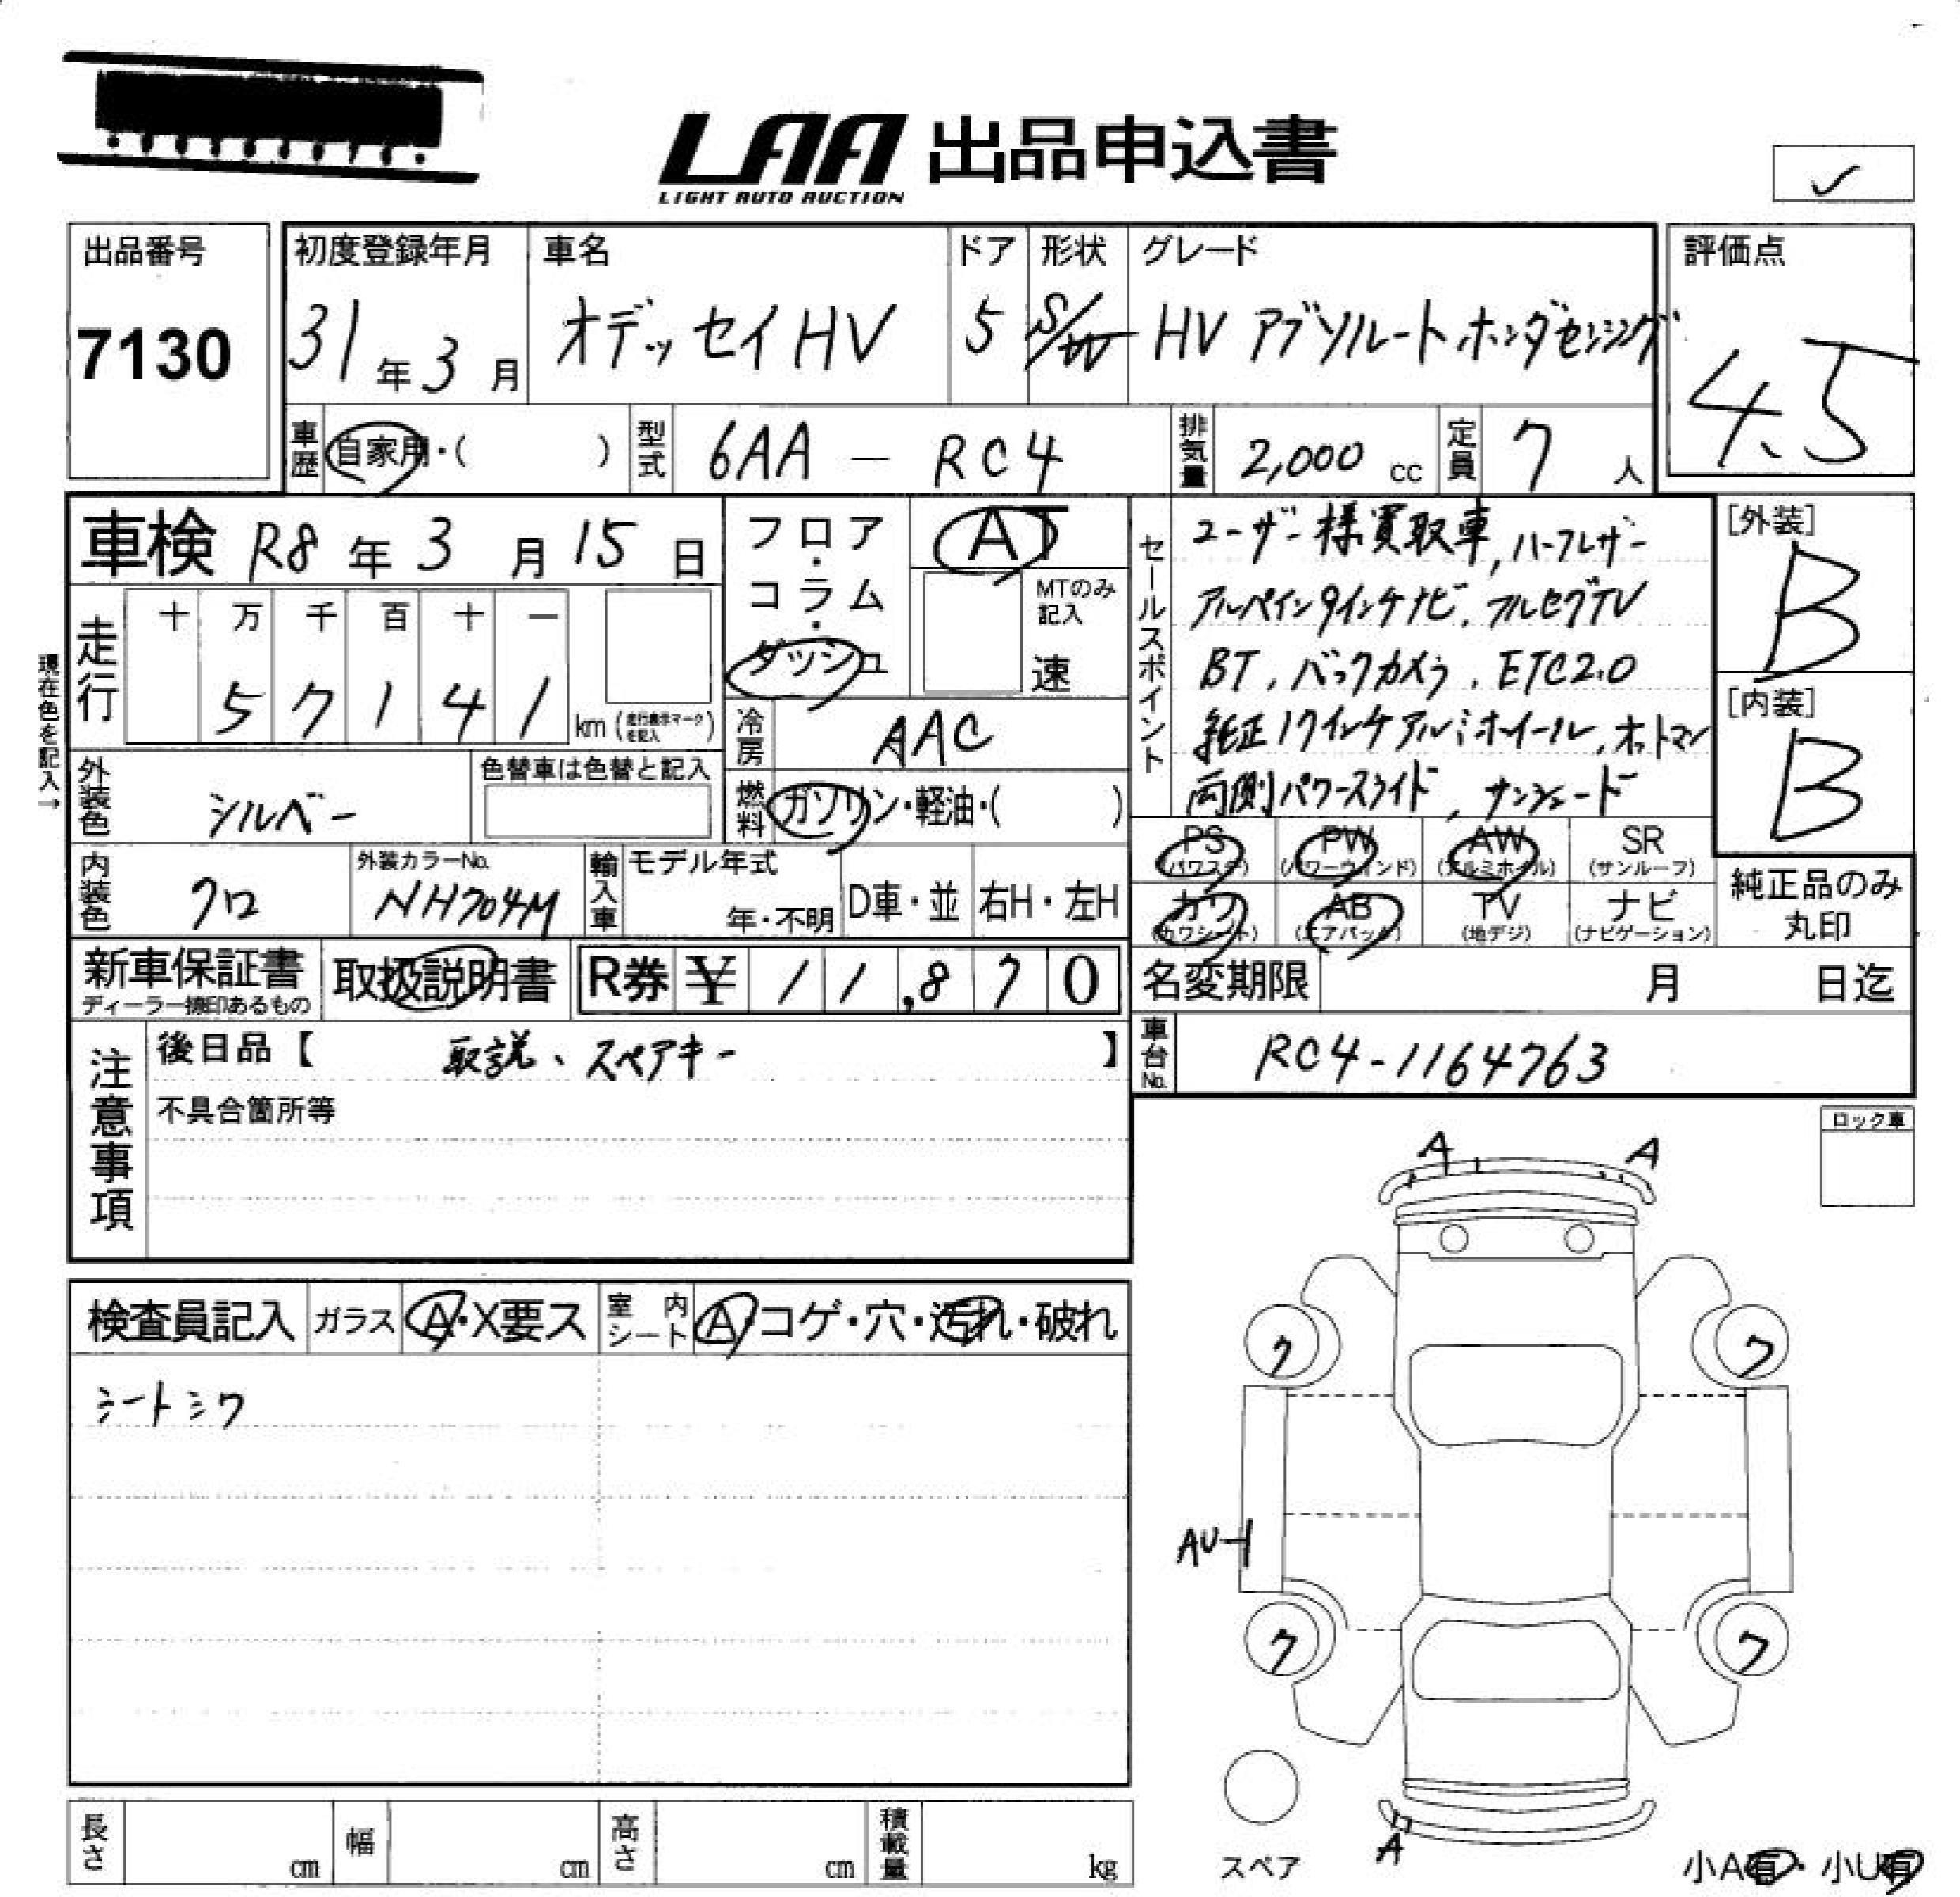 LAA 出品申込書
LIGHT AUTO AUCTION
✓
出品番号
7130
初度登録年月
31年3月
車名
オデッセイHV
ドア
5
形状
S/W
グレード
HV アブソルートホンダセンシング
評価点
4.5
車歴
自家用・( )
型式
6AA - RC4
排気量
2,000 cc
定員
7人
車検 R8年3月15日
フロア・コラム・ダッシュ
AT
MTのみ記入
速
セールスポイント
ユーザー様買取車, ハーフレザー
アルペイン9インチナビ, フルセグTV
BT, バックカメラ, ETC2.0
純正17インチアルミホイール, オットマン
両側パワースライド, サンシェード
[外装]
B
[内装]
B
現在色を記入→
走行
十 万 千 百 十 一
5 7 1 4 1 km (走行表示マークを記入)
冷房
AAC
外装色
シルベー
色替車は色替と記入
燃料
ガソリン・軽油・( )
PS (パワステ)
PW (パワーウインド)
AW (アルミホイル)
SR (サンルーフ)
カワ (カワシート)
AB (エアバック)
TV (地デジ)
ナビ (ナビゲーション)
純正品のみ丸印
内装色
クロ
外装カラーNo.
NH704M
輸入車
モデル年式
年・不明
D車・並
右H・左H
新車保証書
ディーラー捺印あるもの
取扱説明書
R券 ¥ 11,870
名変期限 月 日迄
注意事項
後日品【 取説、スペアキー 】
不具合箇所等
車台No.
RC4-1164763
ロック車
A A
検査員記入
ガラス
A・X要ス
室内シート
A・コゲ・穴・汚れ・破れ
シートシワ
ク ク
AU-1
ク ク
スペア
A
小A有・小U有
長さ cm
幅 cm
高さ cm
積載量 kg